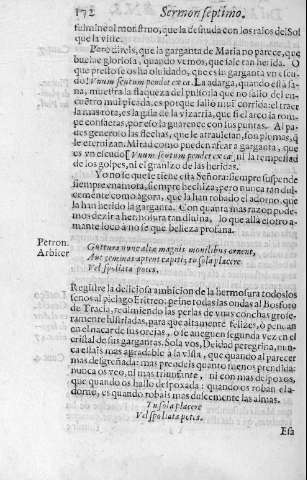 172 Sermon septimo.
fulmine al monstruo, que la desnuda con los raios del Sol
que la viste.
Pero direis, que la garganta de Maria no parece, que
buelue gloriosa, quando vemos, que sale tan herida. O
que presto se os ha oluidado, que es su garganta vn escu-
do! Vnum scutum pendet ex ea. La adarga, quando està sa-
na, muestra la flaqueza del pusitoria que no salio del en-
cuentro mui picada, es porque salio mui corrida: el trace
la mas rota, es la gala de la vizarria, que si el arco la rom-
pe con saetas, por esso la guarnece con los puntas. Al pa-
ues generoso las flechas, que le atrauiesan, son plumas, q̃
le eternizan. Mirad como pueden afear a garganta, que
es vn escudo! Vnum scutum pendet ex ea; ni la tempestad
de los golpes, ni el granizo de las heridas.
Yo no se que tiene esta Señora: siempre suspende
siempre enamora, siempre hechiza; pero nunca tan dul-
cemente como agora, que la han robado el adorno, que
la han herido la garganta. Con quanta mas razon pode-
mos dezir a hermosura tan diuina, lo que allà el otro a-
mante loco a no se que belleza profana.
Petron.
Arbiter
Guttura nunc aliæ magnis monilibus ornent,
Aut gemmas aptent capiti; tu sola placere
Vel spoliata potes.
Registre la deliciosa ambicion de la hermosura todos los
senos al pielago Eritreo: peine todas las ondas al Bosforo
de Tracia, redimiendo las perlas de vnas conchas grose-
ramente lustradas, para que altamente felizes, o penẽ an
en el nacar de las orejas, o se aneguen segunda vez en el
cristal de sus gargantas. Sola vos, Deidad peregrina, nun-
ca estais mas agradable a la vista, que quando al parecer
mas desgreñada: mas prendeis quanto menos prendida:
nunca os veo, ni mas triunfante, ni con mas despoxos,
que quando os hallo despoxada: quando os roban el a-
dorno, es quando robais mas dulcemente las almas.
Tu sola placere
Vel spoliata potes.
Esa